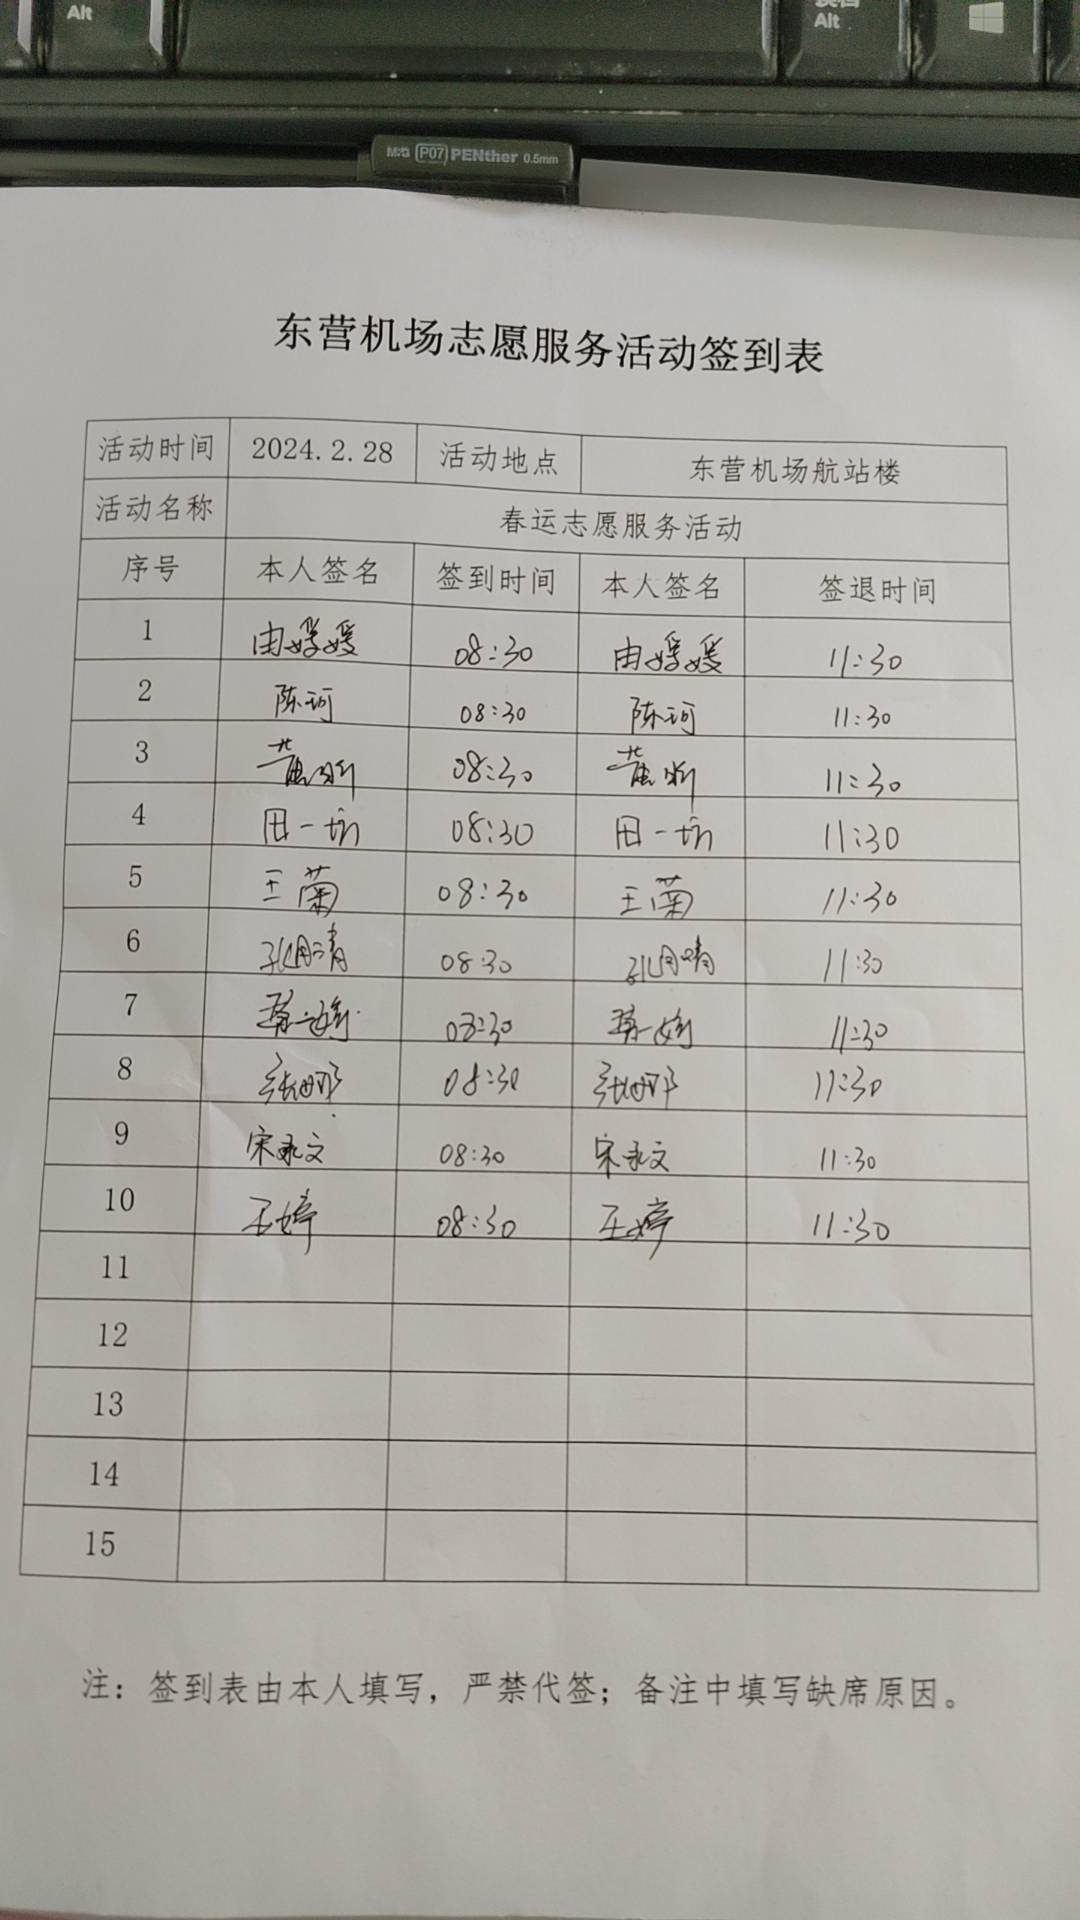 Alt
Alt
M&G P07 PENther 0.5mm
东营机场志愿服务活动签到表
活动时间 2024.2.28 活动地点 东营机场航站楼
活动名称 春运志愿服务活动
序号 本人签名 签到时间 本人签名 签退时间
1 由媛媛 08:30 由媛媛 11:30
2 陈珂 08:30 陈珂 11:30
3 08:30 11:30
4 田一 08:30 田一 11:30
5 王菊 08:30 王菊 11:30
6 08:30 11:30
7 08:30 11:30
8 张娜 08:30 张娜 11:30
9 宋永文 08:30 宋永文 11:30
10 王婷 08:30 王婷 11:30
11
12
13
14
15
注：签到表由本人填写，严禁代签；备注中填写缺席原因。